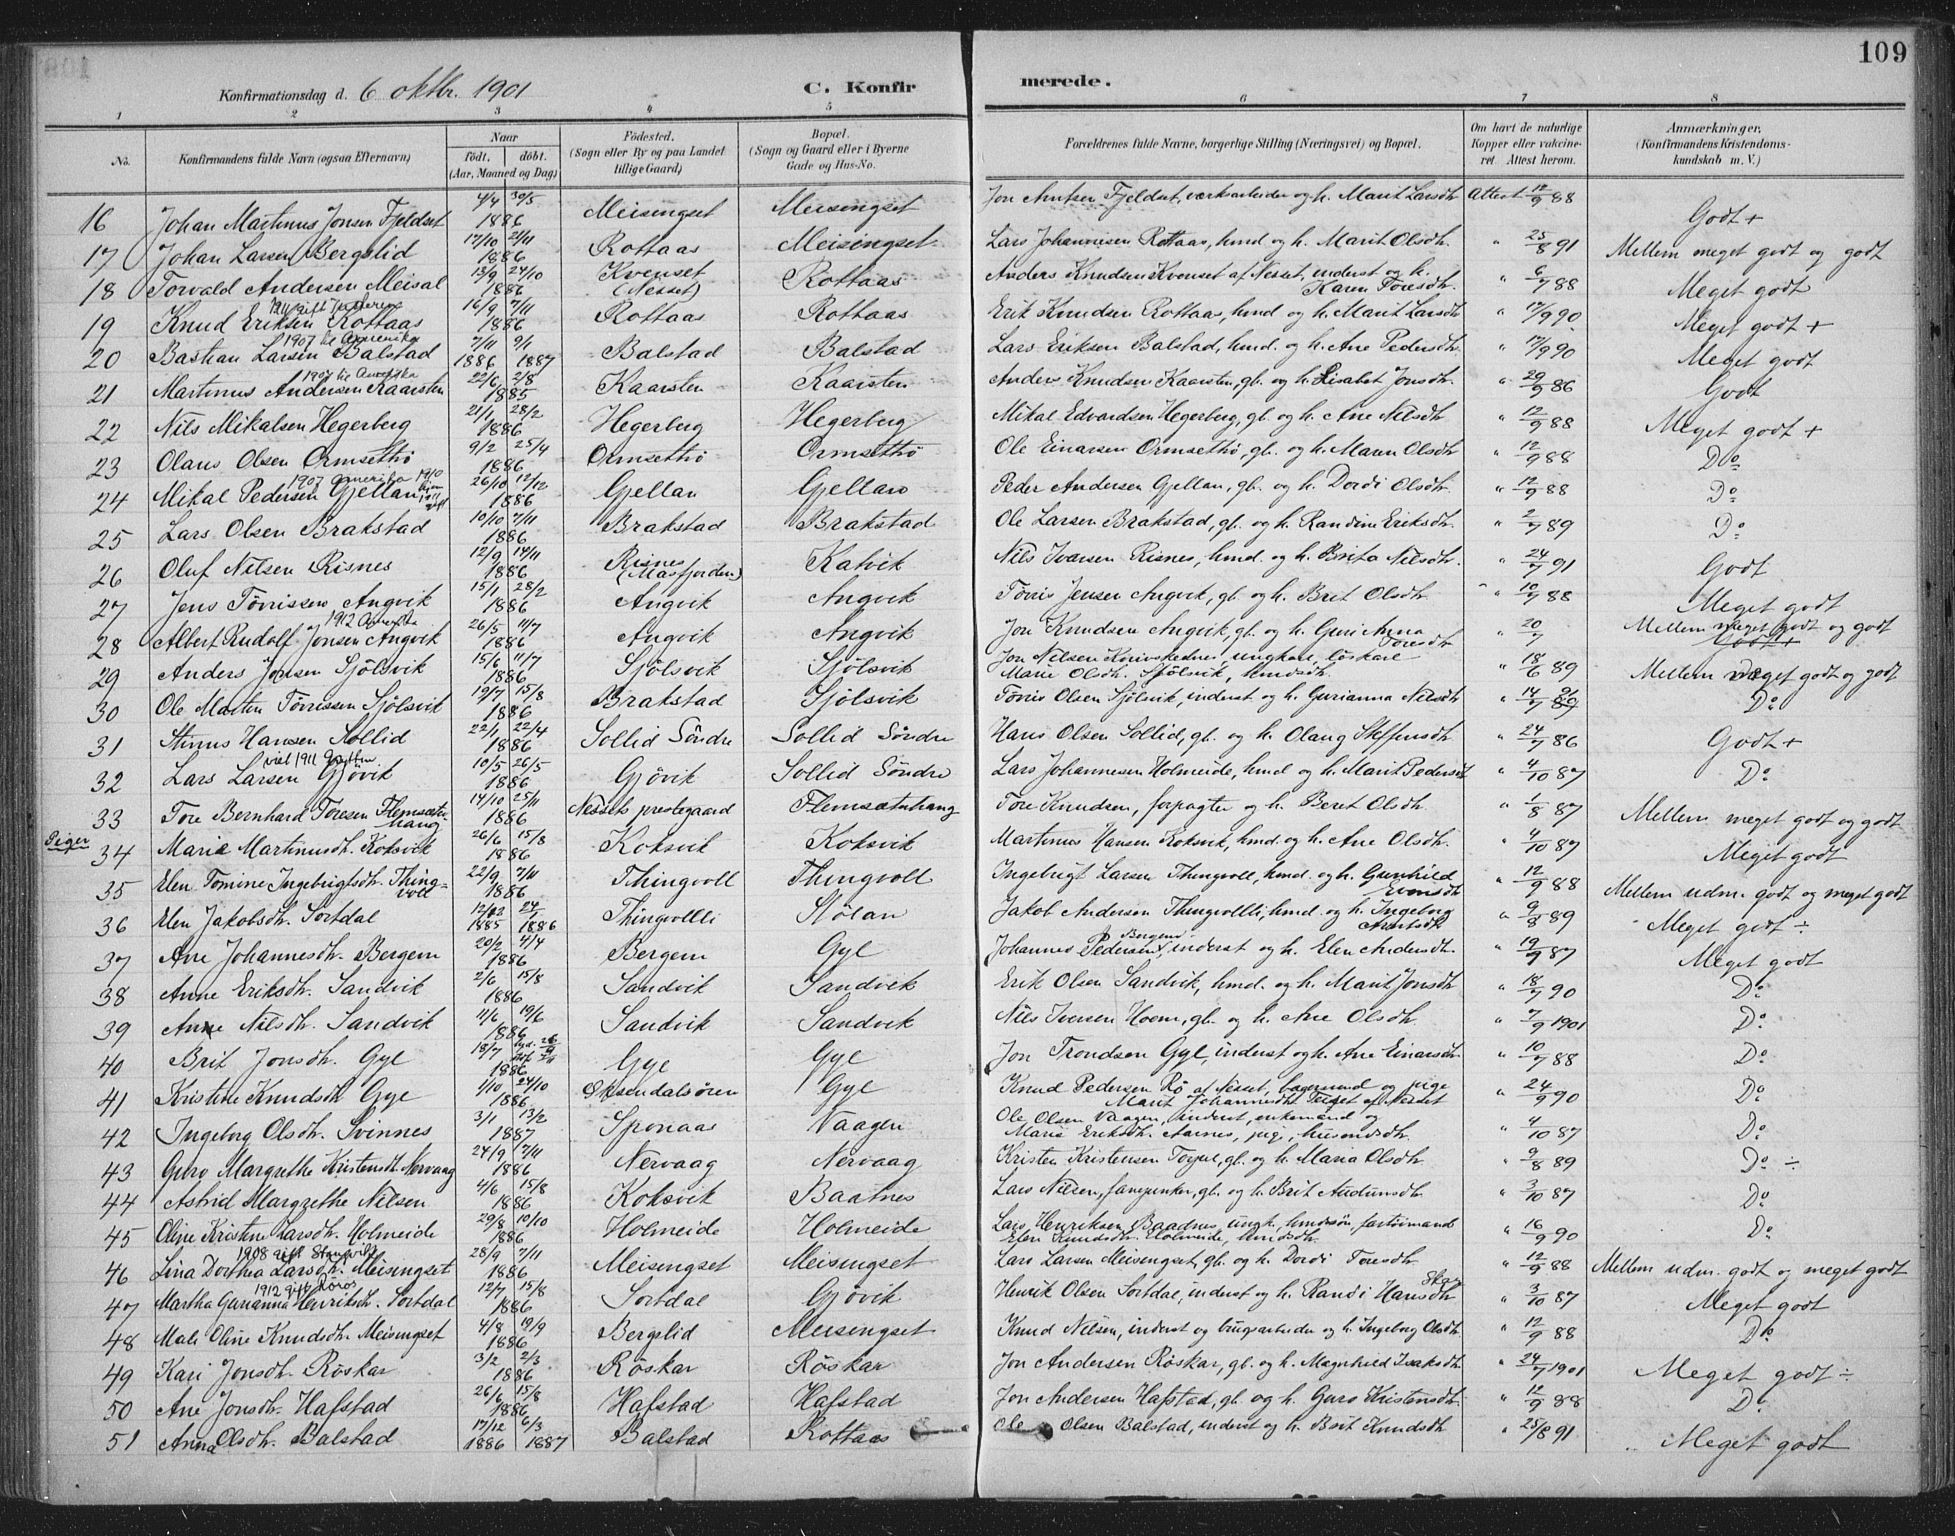 109
Konfirmationsdag d. 6 oktbr. 1901
C. Konfir
merede.
1 2 3 4 5 6 7 8
No.
Konfirmandens fulde Navn (ogsaa Efternavn)
Naar
födt. döbt.
(Aar, Maaned og Dag)
Födested.
(Sogn eller By og paa Landet
tillige Gaard)
Bopæl.
(Sogn og Gaard eller i Byerne
Gade og Hus-No.
Forældrenes fulde Navne, borgerlige Stilling (Næringsvei) og Bopæl.
Om havt de naturlige
Kopper eller vakcine-
ret. Attest herom.
Anmærkninger.
(Konfirmandens Kristendoms-
kundskab m. V.)
16 Johan Martinus Jonsen Fjeldset 4/4 30/5 1886 Meisingset Meisingset Jon Arntsen Fjeldset, værkarbeider og h. Marit Larsdh Attest 12/9 88 Godt +
17 Johan Larsen Bergslid 17/10 21/11 1886 Rottaas Meisingset Lars Johannesen Rottaas, hmd og h. Marit Olsdh. " 25/8 91 Mellem meget godt og godt
18 Torvald Andersen Meisal 13/9 24/10 1886 Kvenset (Nesset) Rottaas Anders Knudsen Kvenset af Nesset, inderst og h. Karen Toresdh. " 6/7 88 Meget godt
19 Knud Eriksen Rottaas 16/9 7/11 1886 Rottaas Rottaas Erik Knudsen Rottaas, hmd og h. Marit Larsdh " 17/9 90 Meget godt +
1907 til Amerika
20 Bastian Larsen Balstad 7/11 1886 9/1 1887 Balstad Balstad Lars Eriksen Balstad, hmd. og h. Ane Pedersdh. " 17/9 90 Meget godt
1907 til Amerika
21 Martinus Andersen Kaarsten 22/6 2/8 1885 Kaarsten Kaarsten Anders Knudsen Kaarsten, gb. og h. Lisabet Jonsdh. " 29/9 86 Godt
22 Nils Mikalsen Hegerberg 21/1 28/2 1886 Hegerberg Hegerberg Mikal Edvardsen Hegerberg, gb. og h. Ane Nilsdh " 12/9 88 Meget godt +
23 Olaus Olsen Ormsethö 9/2 25/4 1886 Ormsethö Ormsethö Ole Einarsen Ormsethö, gb. og h. Maren Olsdh " 12/9 88 Do
1907 Amerika 1910
24 Mikal Pedersen Gjellan 26/10 12/12 1886 Gjellan Gjellan Peder Andersen Gjellan, gb. og h. Dordi Olsdh. " 12/9 88 Do
25 Lars Olsen Brakstad 10/10 7/11 1886 Brakstad Brakstad Ole Larsen Brakstad, gb. og h. Randine Eriksdh. " 2/7 89 Do
26 Oluf Nilsen Risnes 12/9 14/11 1886 Risnes (Masfjorden) Kalvik Nils Ivarsen Risnes, hmd. og h. Brita Nilsdh. " 24/7 91 Godt
27 Jens Törrissen Angvik 15/1 28/2 1886 Angvik Angvik Törris Jensen Angvik, gb. og h. Brit Olsdh " 10/7 88 Meget godt
1912 Amerika
28 Albert Rudolf Jonsen Angvik 26/5 11/7 1886 Angvik Angvik Jon Knudsen Angvik, gb. og h. Guri Anna Toresdh " 20/7 Mellem meget godt og godt
29 Anders Jonsen Sjölsvik 15/6 11/7 1886 Sjölsvik Sjölsvik Jon Nilsen Knivskednes, ungkarl, löskarl Marie Olsdh. Sjölsvik, hmdsdh. " 18/6 89 Mellem meget godt og godt
30 Ole Marten Törrissen Sjölsvik 19/7 15/8 1886 Brakstad Sjölsvik Törris Olsen Sjölsvik, inderst og h. Gurianna Nilsdh " 14/7 Do
31 Stinus Hansen Sollid 22/1 22/4 1886 Sollid Söndre Sollid Söndre Hans Olsen Sollid, gb. og h. Olaug Steffensdh. " 24/7 86 Godt +
32 Lars Larsen Gjövik 10/5 26/5 1886 Gjövik Sollid Söndre Lars Johannesen Holmeide, hmd og h. Marit Pedersdt " 4/10 87 Do
33 Tore Bernhard Toresen Flemsæterhaug 14/10 25/11 1886 Nessets prestegaard Flemsæterhaug Tore Knudsen, forpagter og h. Beret Olsdh. " 1/8 87 Mellem meget godt og godt
Piger
34 Marie Martinusdh. Koksvik 26/6 15/8 1886 Koksvik Koksvik Martinus Hansen Koksvik, hmd. og h. Ane Olsdh. " 4/10 87 Meget godt
35 Elen Tomine Ingebrigtsdh. Thingvoll 22/9 7/11 1886 Thingvoll Thingvoll Ingebrigt Larsen Thingvoll, hmd. og h. Gunhild Evensdh " 12/9 88 Mellem udm. godt og meget godt
36 Elen Jakobsdh. Sortdal 12/12 1885 24/1 1886 Thingvollli Stölan Jakob Andersen Thingvollli, hmd. og h. Ingeborg Arntsdh " 9/8 89 Meget godt ÷
37 Ane Johannesdh. Bergem 20/2 4/4 1886 Bergem Gyl Johannes Pedersen Bergem, inderst og h. Elen Andersdh. " 19/9 87 Meget godt
38 Anne Eriksdh. Sandvik 2/6 15/8 1886 Sandvik Sandvik Erik Olsen Sandvik, hmd. og h. Marit Jonsdh " 18/7 90 Do
39 Anne Nilsdh. Sandvik 11/6 19/6 1886 Sandvik Sandvik Nils Iversen Hoem, gb. og h. Ane Olsdh. " 7/9 1901 Do
40 Brit Jonsdh. Gyl 18/7 1886 Gyl Gyl Jon Trondsen Gyl, inderst og h. Ane Einarsdh. " 10/7 88 Do
41 Kristine Knudsdh Gyl 1/10 24/10 1886 Öksendalsören Gyl Knud Pedersen Rö af Nesset, bagersvend og pige Marit Johannesdh af Nesset " 24/9 90 Do
42 Ingeborg Olsdh. Svinnes 3/1 13/2 1887 Sponaas Vaagen Ole Olsen Vaagen, inderst, enkemand og Marie Eriksdh. Aarnes, pige, husmdsdh. " 4/10 87 Do
43 Guro Margrethe Kristensdt Nervaag 24/9 7/11 1886 Nervaag Nervaag Kristen Kristensen Torjul, gb. og h. Maria Olsdh. " 9/8 89 Do ÷
44 Astrid Margrethe Nilsen 4/6 15/8 1886 Koksvik Baatnes Lars Nilsen, fanejunker, gb. og h. Brit Audunsdh. " 3/10 87 Do
45 Oline Kristine Larsdh. Holmeide 29/8 10/10 1886 Holmeide Holmeide Lars Henriksen Baadnes, ungk., hmdssön, fortömmand Elen Knudsdh. Holmeide, hmdsdh. " 16/9 90 Do
1908 gift Stangvik
46 Lina Dorthea Larsdh. Meisingset 28/9 7/11 1886 Meisingset Meisingset Lars Larsen Meisingset, gb. og h. Dordi Toresdh " 12/9 88 Mellem udm. godt og meget godt
1912 gift Röros
47 Martha Gurianna Henriksdh. Sortdal 12/7 15/8 1886 Sortdal Gjövik Henrik Olsen Sortdal, inderst og h. Randi Hansdh " 3/10 87 Meget godt
48 Mali Oline Knudsdh. Meisingset 4/8 19/9 1886 Bergslid Meisingset Knud Nilsen, inderst og brugsarbeider og h. Ingeborg Olsdh. " 12/9 88 Do
49 Kari Jonsdh. Röskar 3/2 2/3 1886 Röskar Röskar Jon Andersen Röskar, gb. og h. Magnhild Isaksdh. " 24/7 1901 Meget godt ÷
50 Ane Jonsdh. Hafstad 26/6 15/8 1886 Hafstad Hafstad Jon Andersen Hafstad, gb. og h. Guro Kristensdh. " 12/9 88 Do
51 Anna Olsdh. Balstad 17/12 1886 6/3 1887 Balstad Rottaas Ole Olsen Balstad, inderst og h. Brit Knudsdh " 25/8 91 Meget godt